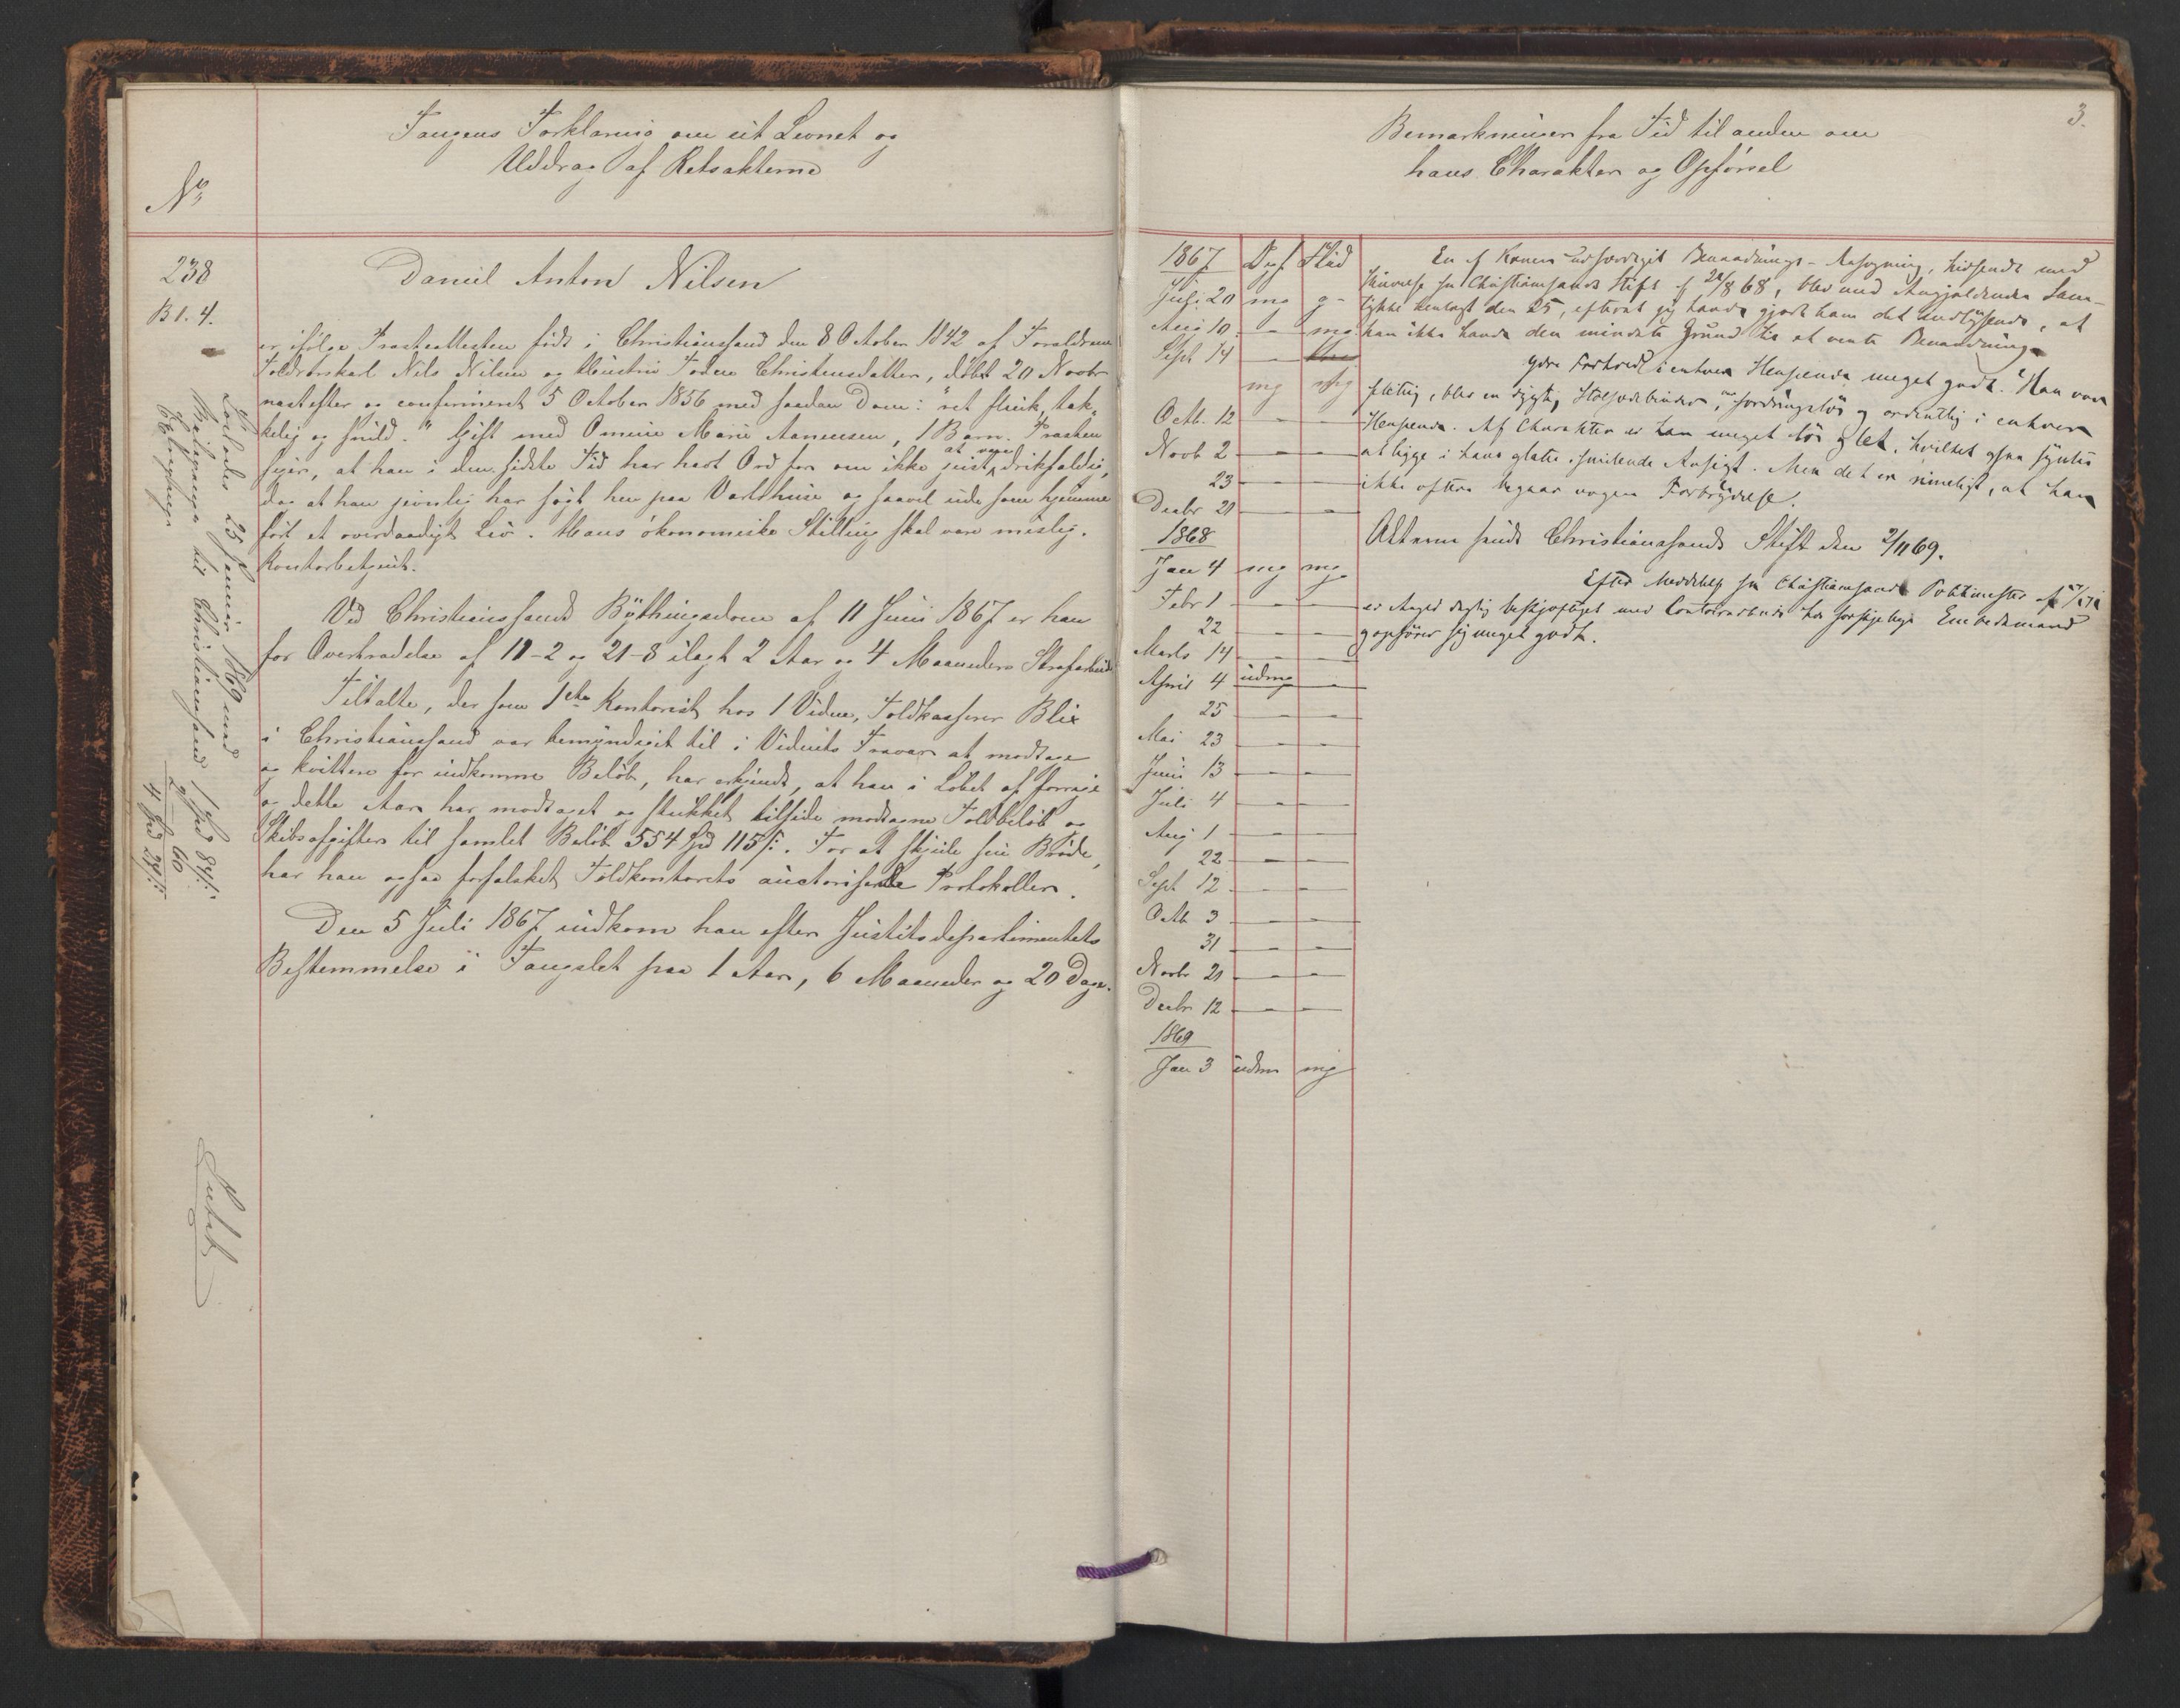 Fangens Forklaring om sit Levnet og
Uddrag af Retsakterne
No
238
B 1. 4.
Daniel Anton Nilsen
er ifølge Præsteattesten født i Christianssand den 8 October 1842 af Forældrene
Toldrorskarl Nils Nilsen og Hustru Todne Christensdatter, døbt 20 Novbr
næstefter og confirmeret 5 October 1856 med saadan Dom: "ret flink, tæk-
kelig og snild." Gift med Omine Marie Aanensen, 1 Barn. Præsten
siger, at han i den sidste Tid har havt Ord for om ikke just at være drikfældig,
dog at han jevnlig har søgt hen paa Værtshuse og saavel ude som hjemme
ført et overdaadigt Liv. Hans økonomiske Stilling skal være mislig.
Kontorbetjent.
Ved Christianssands Bythingsdom af 11 Juni 1867 er han
for Overtrædelse af 12-2 og 21-8 ilagt 2 Aar og 4 Maaneders Strafarbeide
Tiltalte, der som 1ste Kontorist hos 1 Vidne, Toldkasserer Blix
i Christianssand var bemyndiget til i Vidnets Fravær at modtage
og kvittere for indkomne Beløb, har erkjendt, at han i Løbet af forrige
og dette Aar har modtaget og stukket tilside modtagne Toldbeløb og
Skibsafgifter til samlet Beløb 554 Spd 115 s. For at skjule sin Brøde,
har han ogsaa forfalsket Toldkontorets autoriserede Protokoller.
Den 5 Juli 1867 indkom han efter Justitsdepartementets
Bestemmelse i Fængslet paa 1 Aar, 6 Maaneder og 20 Dage.
Løslodes 25 Januar 1869 med
Reisepenge til Christianssand 1 Spd 84 s.
2 " 60
4 Spd 24 s.
3.
Bemærkninger fra Tid til anden om
hans Charakter og Opførsel
1867 Opf. Flid
Juli 20 mg g -
Aug 10 - mg
Sept 14 -
mg mg
Octb. 12 - -
Novb 2 - -
23 - -
Decbr 21 - -
1868
Jan 4 mg mg
Febr 1 - -
22 - -
Marts 14 - -
April 4 udm -
25 - -
Mai 23 - -
Juni 13 - -
Juli 4 - -
Aug 1 - -
22 - -
Sept 12 - -
Octb 3 - -
31 - -
Novbr 21 - -
Decbr 12 - -
1869
Jan 3 udm mg
En af Konen udfærdiget Benaadnings-Ansøgning, hidsendt med
Skrivelse fra Christianssands Stift af 20/8 68, blev med Angjældendes Sam-
tykke henlagt den 25, efterat jeg havde gjort ham det indlysende, at
han ikke havde den mindste Grund til at vente Benaadning.
Ydre Forhold i enhver Henseende meget godt. Han var
flittig, blev en dygtig , var fordringsløs og ordentlig i enhver
Henseende. Af Charakter er han meget løs og let, hvilket ogsaa syntes
at ligge i hans glatte, smilende Ansigt. Men det er rimeligt, at han
ikke oftere begaar nogen Forbrydelse.
Akterne sendt Christianssands Stift den 2/11 69.
Efter Meddelelse fra Christianssands Politimester af
er Anged. daglig beskjæftiget med Contorarbeide hos forskjellige Embedsmænd
og opfører sig meget godt.